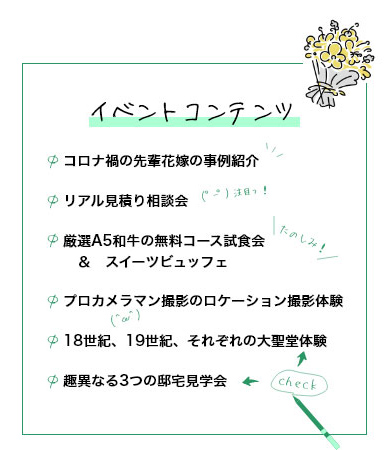 イベントコンテンツ
コロナ禍の先輩花嫁の事例紹介
リアル見積り相談会
注目っ!
厳選A5和牛の無料コース試食会
& スイーツビュッフェ
たのしみ!
プロカメラマン撮影のロケーション撮影体験
18世紀、19世紀、それぞれの大聖堂体験
趣異なる3つの邸宅見学会
check